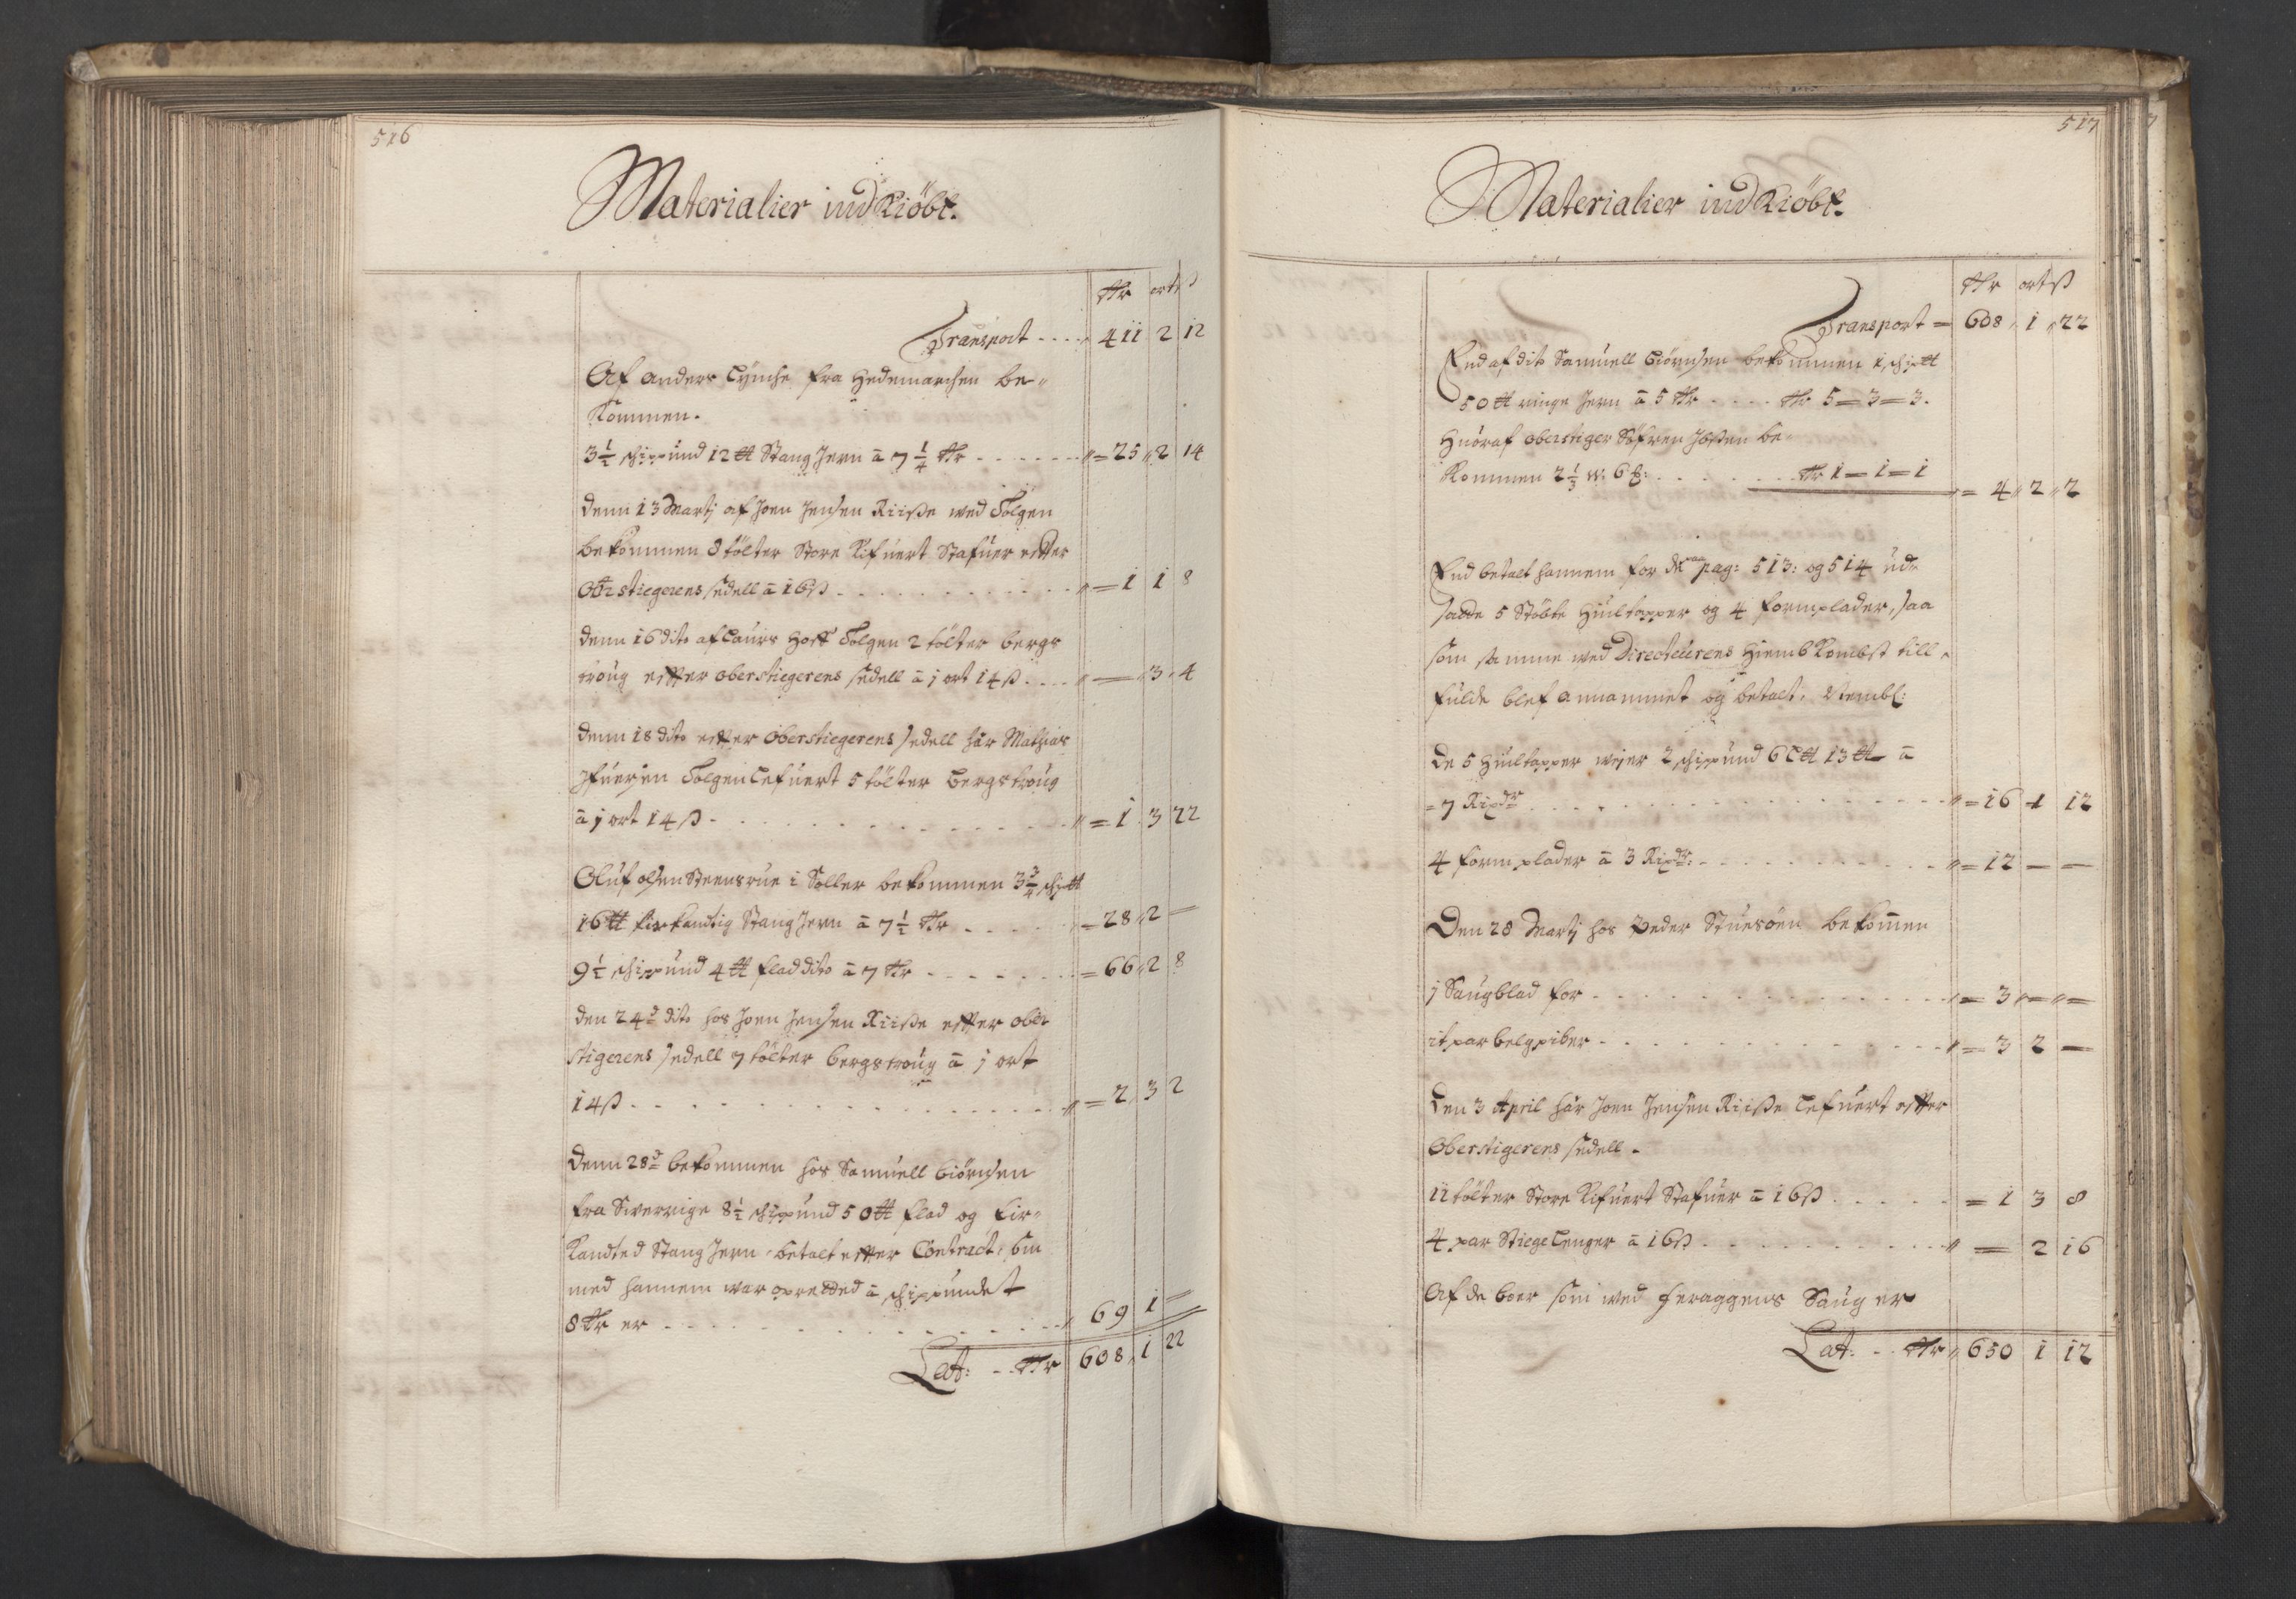 516
Materialier indKiöbt.
Rdr ort ß
Transport - - - - 411 2 12
Af Anders Lÿnche fra Hedemarchen be-
Kommen.
3½ schippund 12 ℔ Stang Jern â 7¼ Rdr - - - - - - = 25 2 14
Denn 13 Martj af Joen Jensen Riiße wed Tolgen
bekommen 8 tölter Store Kifuert Stafuer effter
Obrstiegerens sedell â 16 ß - - - - - = 1 1 8
Denn 16 dito af Laurs Hoff Tolgen 2 tölter bergs
troug effter oberstiegerens sedell â j ort 14 ß - - - - — 3 4
Denn 18 dito effter Oberstiegerens sedell här Mathias
Ifuersen Tolgen Lefuert 5 tölter Bergstroug
â j ort 14 ß - - - - - = 1 3 22
Oluf olsen Steensrue i Soller bekommen 3¾ schip℔
16 ℔ firkandtig Stang Jern â 7½ Rdr - - - - - = 28 2 —
9½ schippund 4 ℔ flad dito â 7 Rdr - - - - - = 66 2 8
Den 24d dito hos Joen Jensen Riiße effter ober
stigerens sedell 7 tölter bergstroug â j ort
14 ß - - - - - = 2 3 2
Denn 28d bekommen hos Samuell Biörnsen
fra Swerrige 8½ schippund 50 ℔ flad og fir-
Kandted Stang Jern, betalt effter Contract, som
med hannem war opretted â schippundet
8 Rdr er - - - - - 69 1 =
Lat: - - Rdr 608 1 22
517
Materialier indKiöbt.
Rdr ort ß
Transport = 608 1 22
End af dito Samuell Biörnsen bekommen 1 schip℔
50 ℔ ringe Jern â 5 Rdr - - - - Rdr 5 = 3 = 3.
Huoraf oberstiger Söfren Joßen be-
Kommen 2⅓ w: 6 - - - - - Rdr 1 = 1 = 1
= 4 2 2
End betalt hannem for de paa pag: 513: og 514 ud-
satte 5 Stöbte Hiultapper og 4 formplader, saa
som samme wed Directeurens HiembKombst till-
fulde blef annammet og betalt, Nembl:
De 5 Hiultapper weyer 2 schippund 6 L℔ 13 ℔ â
= 7 Rixdr - - - - - = 16 1 12
4 formplader â 3 Rixdr: - - - - - = 12 — —
Den 28 Martj hos Peder Stuesöen bekommen
j Saugblad for - - - - - = 3 = =
it par belgpiber - - - - - = 3 2 —
Den 3 April här Joen Jensen Riiße Lefuert effter
Oberstigerens sedell -
11 tölter Store Kifuert Stafuer â 16 ß - - - - - = 1 3 8
4 par Stiege Lenger â 16 ß - - - - - = 2 16
Af de boer som wed Feraggens Saug er
Lat: - - Rdr 650 1 12